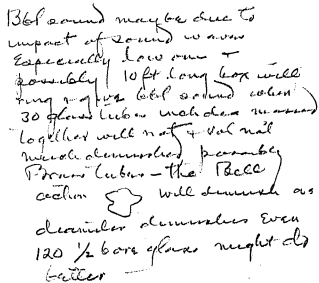 Bbl sound may be due to
impact of sound waves
Especially low ones +
possibly 10 ft long box will
ring & give bbl sound when
30 glass tubes
together will not & vol not
much diminished possibly
Brass tubes - the Bell
action will diminish as
diameter diminishes Even
120 1/2 bore glass might do
better -